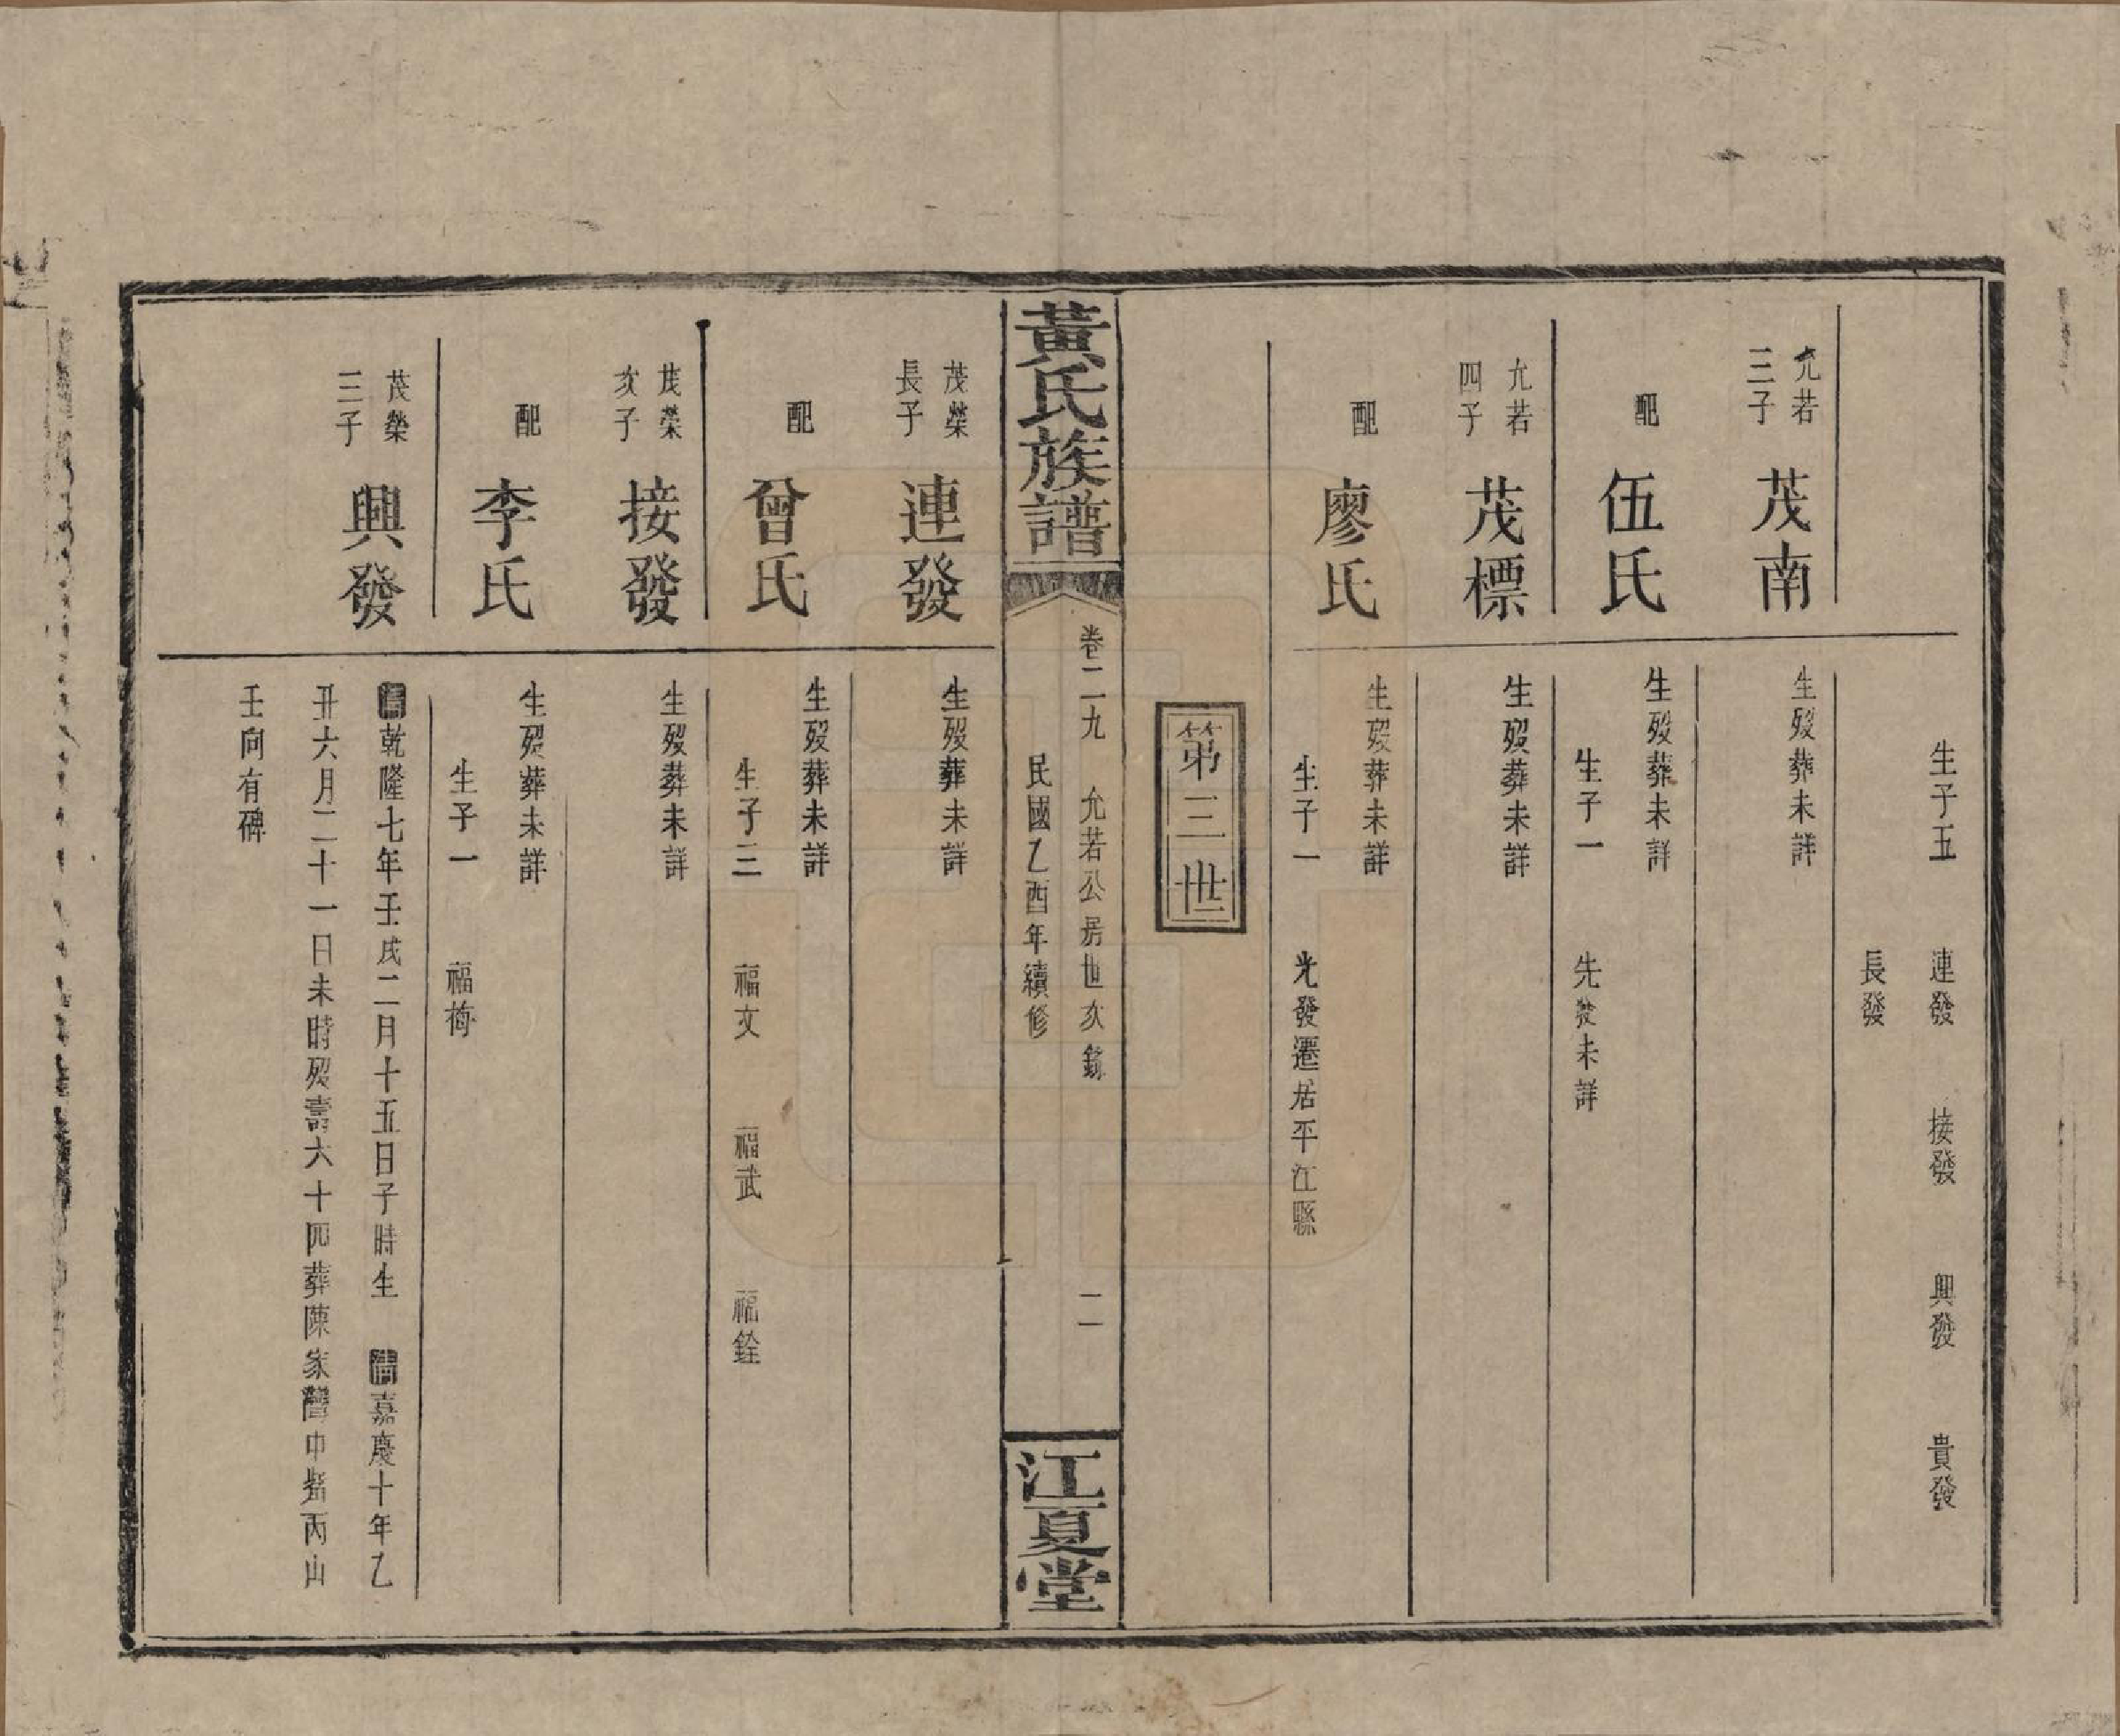 生子五　連發　接發　興發　貴發
長發
允若
三子
茂南
生歿葬未詳
配
伍氏
生歿葬未詳
生子一　先發未詳
允若
四子
茂標
生歿葬未詳
配
廖氏
生歿葬未詳
生子一　光發遷居平江縣
第三世
黃氏族譜
卷二九　允若公房世次錄　二
民國乙酉年續修
江夏堂
茂榮
長子
連發
生歿葬未詳
配
曾氏
生歿葬未詳
生子三　福文　福武　福銓
茂榮
次子
接發
生歿葬未詳
配
李氏
生歿葬未詳
生子一　福梅
茂榮
三子
興發
清乾隆七年壬戌二月十五日子時生　清嘉慶十年乙
丑六月二十一日未時歿壽六十四葬陳家灣中嘴丙山
壬向有碑